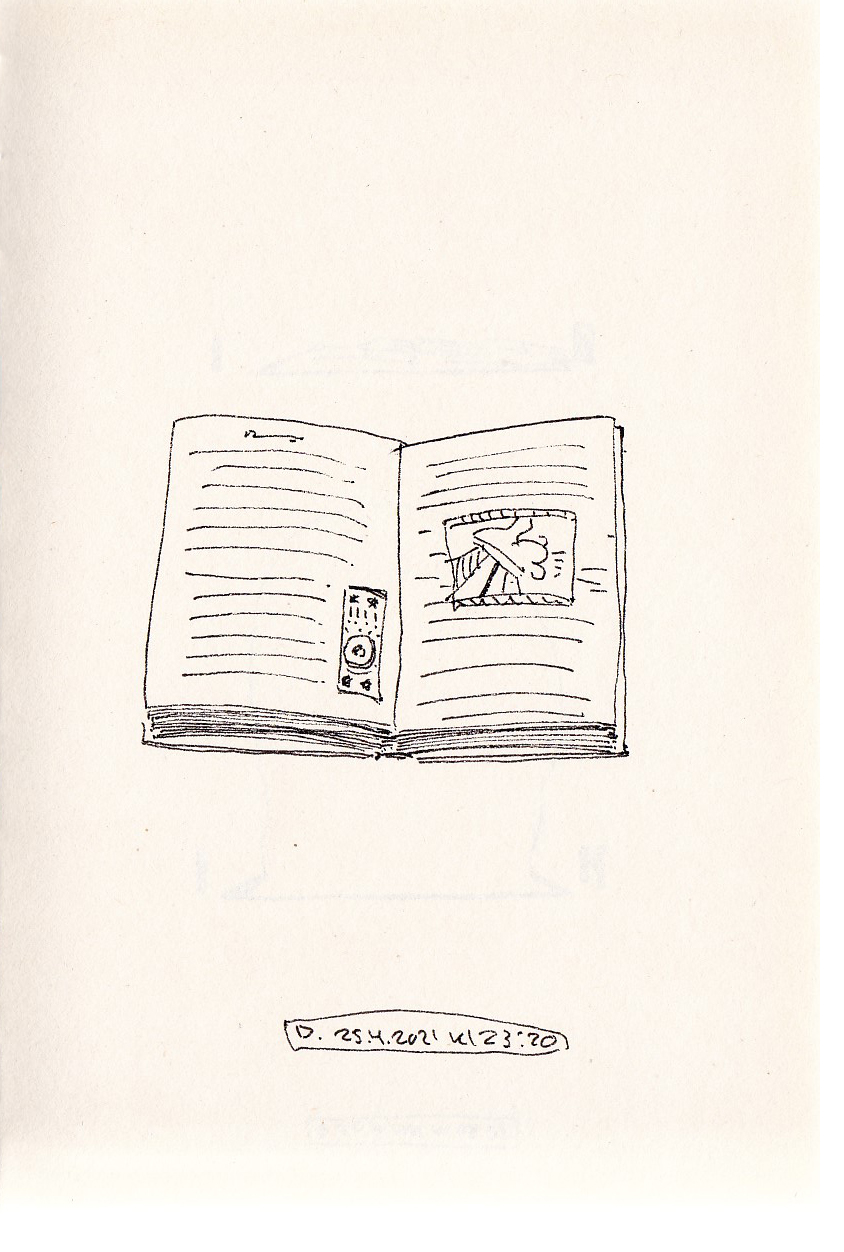 D. 25.4.2021 kl 23:20